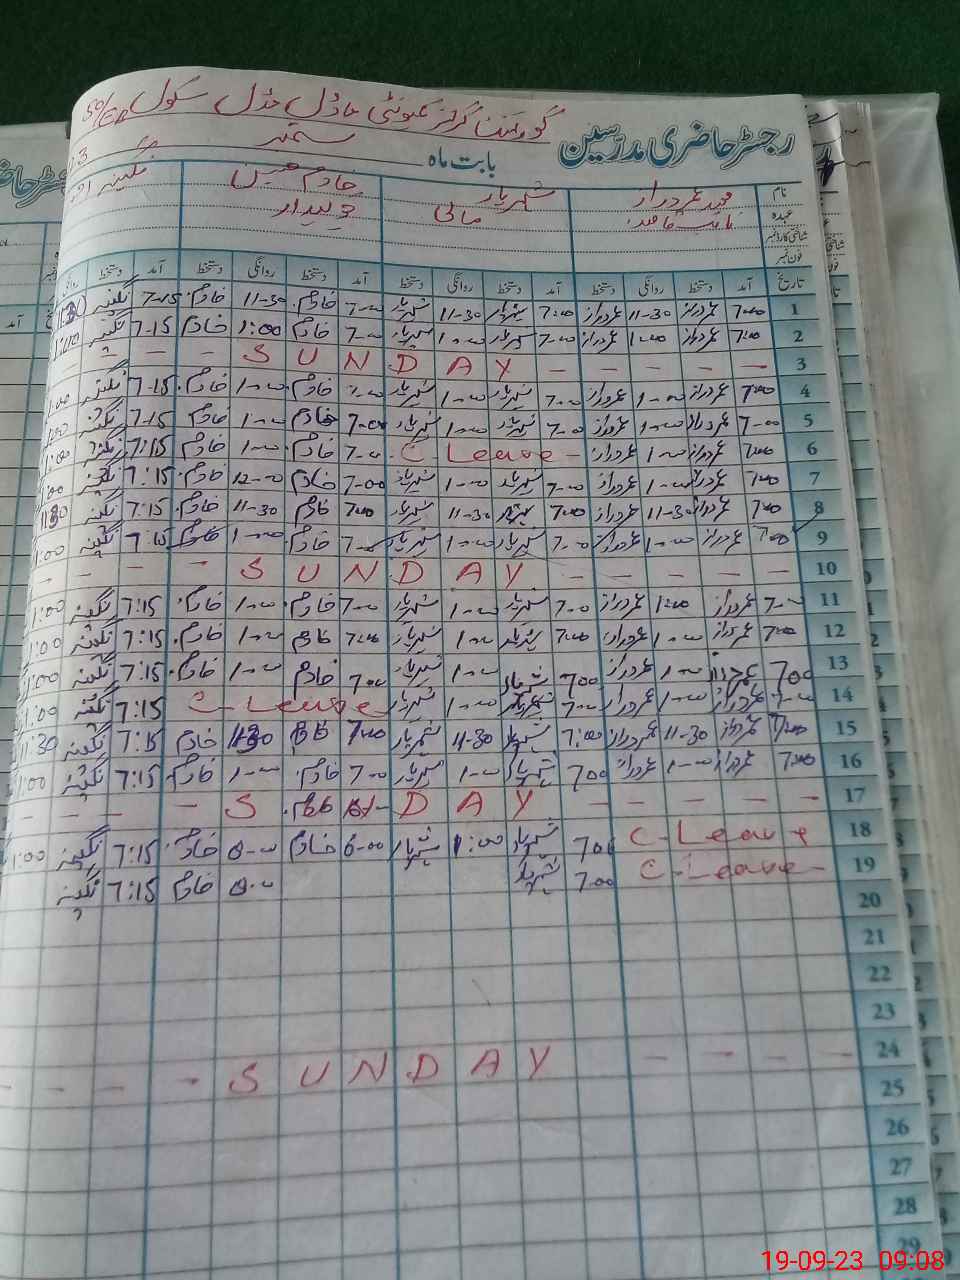 گورنمنٹ گرلز کمیونٹی ماڈل مڈل سکول 50/EB
رجسٹر حاضری مدرسین بابت ماہ ستمبر
نام محمد عمر دراز شہریار خادم حسین نگینہ
عہدہ نائب قاصد مالی چوکیدار
شناختی کارڈ نمبر
فون نمبر
تاریخ آمد دستخط روانگی دستخط آمد دستخط روانگی دستخط آمد دستخط روانگی دستخط آمد دستخط
1 7:00 عمر دراز 11-30 عمر دراز 7:00 شہریار 11-30 شہریار 7-00 خادم 11-30 خادم 7-15 نگینہ 11:30
2 7:00 عمر دراز 1:00 عمر دراز 7-00 شہریار 1-00 شہریار 7-00 خادم 1:00 خادم 7-15 نگینہ 1:00
3 - - - - - S U N D A Y - - -
4 7:00 عمر دراز 1-00 عمر دراز 7-00 شہریار 1-00 شہریار 7-00 خادم 1-00 خادم 7-15 نگینہ 1:00
5 7-00 عمر دراز 1-00 عمر دراز 7-00 شہریار 1-00 شہریار 7-00 خادم 1-00 خادم 7-15 نگینہ 1:00
6 7:00 عمر دراز 1-00 عمر دراز C Leave - 7-00 خادم 1-00 خادم 7:15 نگینہ 1:00
7 7:00 عمر دراز 1-00 عمر دراز 7-00 شہریار 1-00 شہریار 7-00 خادم 12-00 خادم 7:15 نگینہ 1:00
8 7:00 عمر دراز 11-30 عمر دراز 7:00 شہریار 11-30 شہریار 7:00 خادم 11-30 خادم 7:15 نگینہ 11:30
9 7:00 عمر دراز 1-00 عمر دراز 7-00 شہریار 1-00 شہریار 7-00 خادم 1-00 خادم 7:15 نگینہ 1:00
10 - - - - - S U N D A Y - - - -
11 7-00 عمر دراز 1:00 عمر دراز 7-00 شہریار 1-00 شہریار 7-00 خادم 1-00 خادم 7:15 نگینہ 1:00
12 7:00 عمر دراز 1-00 عمر دراز 7:00 شہریار 1-00 شہریار 7:00 خادم 1-00 خادم 7:15 نگینہ 1:00
13 7:00 عمر دراز 1-00 عمر دراز 7:00 شہریار 1-00 شہریار 7:00 خادم 1-00 خادم 7:15 نگینہ 1:00
14 7-00 عمر دراز 1-00 عمر دراز 7-00 شہریار 1-00 شہریار C-Leave 7:15 نگینہ 1:00
15 7:00 عمر دراز 11-30 عمر دراز 7:00 شہریار 11-30 شہریار 7:00 خادم 11:30 خادم 7:15 نگینہ 11:30
16 7:00 عمر دراز 1-00 عمر دراز 7:00 شہریار 1-00 شہریار 7-00 خادم 1-00 خادم 7:15 نگینہ 1:00
17 - - - - - S D A Y - - - -
18 C-Leave 7:00 شہریار 1:00 شہریار 6-00 خادم خادم 7:15 نگینہ 1:00
19 C-Leave - 7:00 شہریار خادم 7:15 نگینہ
20
21
22
23
24 - - - - S U N D A Y - - - -
25
26
27
28
29
19-09-23 09:08